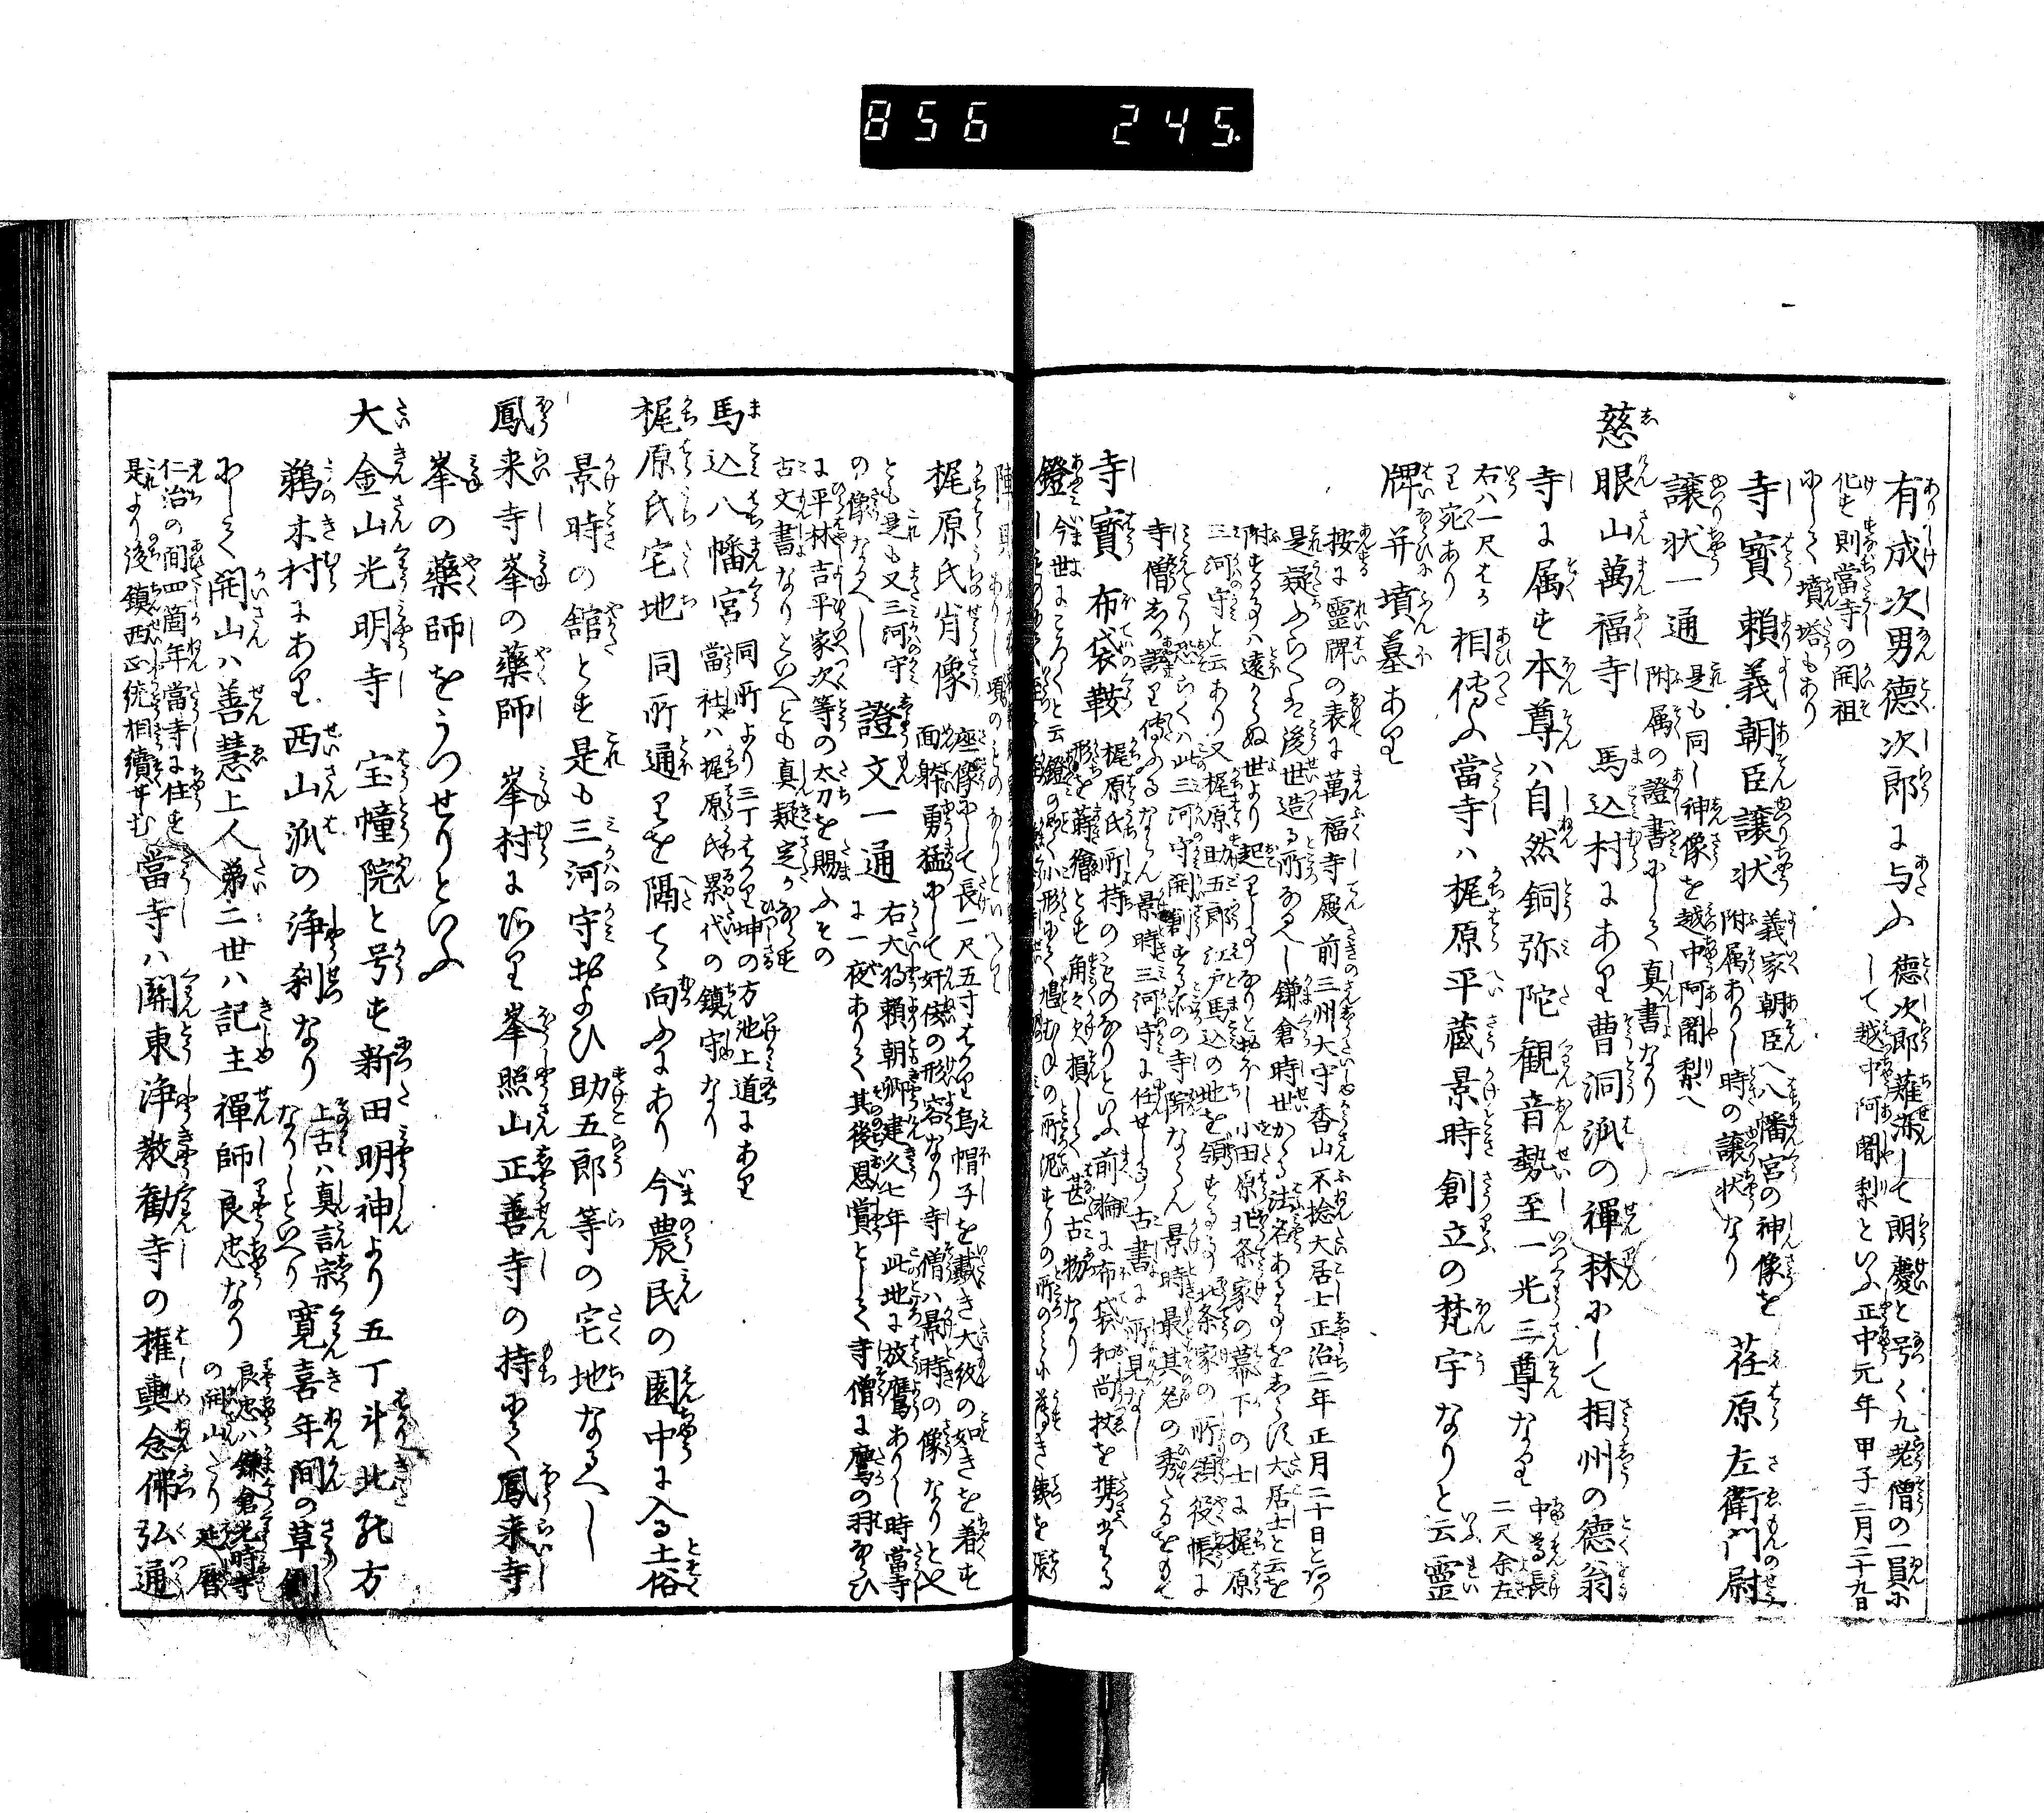 856 245.
有成次男徳次郎に与ふ
徳次郎薙染して朗慶と号く九老僧の一員に
して越中阿闍梨といふ正中元年甲子二月二十九日
化す則當寺の開祖
にして墳塔もあり
寺寳 頼義朝臣譲状
義家朝臣へ八幡宮の神像を
附属ありし時の譲状なり
荏原左衛門尉
譲状一通
是も同し神像を越中阿闍梨へ
附属の證書にして真書なり
慈眼山萬福寺 馬込村にあり曹洞派の禪林にして相州の徳翁
寺に属す本尊ハ自然銅弥陀観音勢至一光三尊なり
中尊長
二尺余左
右ハ一尺はか
り宛あり
相傳ふ當寺ハ梶原平蔵景時創立の梵宇なりと云靈
牌并墳墓あり
按に靈牌の表に萬福寺殿前三州大守香山不捨大居士正治二年正月二十日とあり
是疑ふらくは後世造る所なるへし鎌倉時世かゝる法名あることをしらす大居士と云を
附することハ遠からぬ世より起りしことなりとおほし小田原北条家の幕下の士に梶原
三河守と云あり又梶原助五郎江戸馬込の地を領することを北条家の所領役帳に
恐らくハ此三河守開創する所の寺院ならん景時最其名の秀たるをもて
寺僧しか誤り傳ふるならん景時三河守に任せしこと古書に所見なし
寺寳 布袋鞍
梶原氏所持のものなりといふ前輪に布袋和尚杖を携たる
形を蒔繪とす角々欠損して甚古物なり
鐙
今世に
梶原氏肖像
座像にして長一尺五寸はかり烏帽子を戴き大紋の如きを着す
面躰勇猛にして奸佞の形容なり寺僧ハ景時の像なりと也
とも是も又三河守
の像なるへし
證文一通
右大将頼朝卿建久七年此地に放鷹ありし時當寺
に一夜ありて其後恩賞として寺僧に鷹の羽および
に平林吉平家次等の太刀を賜ふその
古文書なりといへとも真疑定かならす
馬込八幡宮
同所より三丁はかり坤の方池上道にあり
當社ハ梶原氏累代の鎮守なり
梶原氏宅地 同所通りを隔てゝ向ふにあり今農民の園中に入る土俗
景時の舘とす是も三河守および助五郎等の宅地なるへし
鳳来寺峯の藥師 峯村にあり峯照山正善寺の持にて鳳来寺
峯の藥師をうつせりといふ
大金山光明寺 宝幢院と号す新田明神より五丁斗北の方
鵜木村にあり西山派の浄刹なり
上古ハ真言宗
なりしといへり
寛喜年間の草創
にして開山ハ善慧上人第二世ハ記主禪師良忠なり
良忠ハ鎌倉光明寺
の開山たり延應
仁治の間四箇年當寺に住す
是より後鎮西正統相續せむ
當寺ハ關東浄教勧寺の権輿念佛弘通